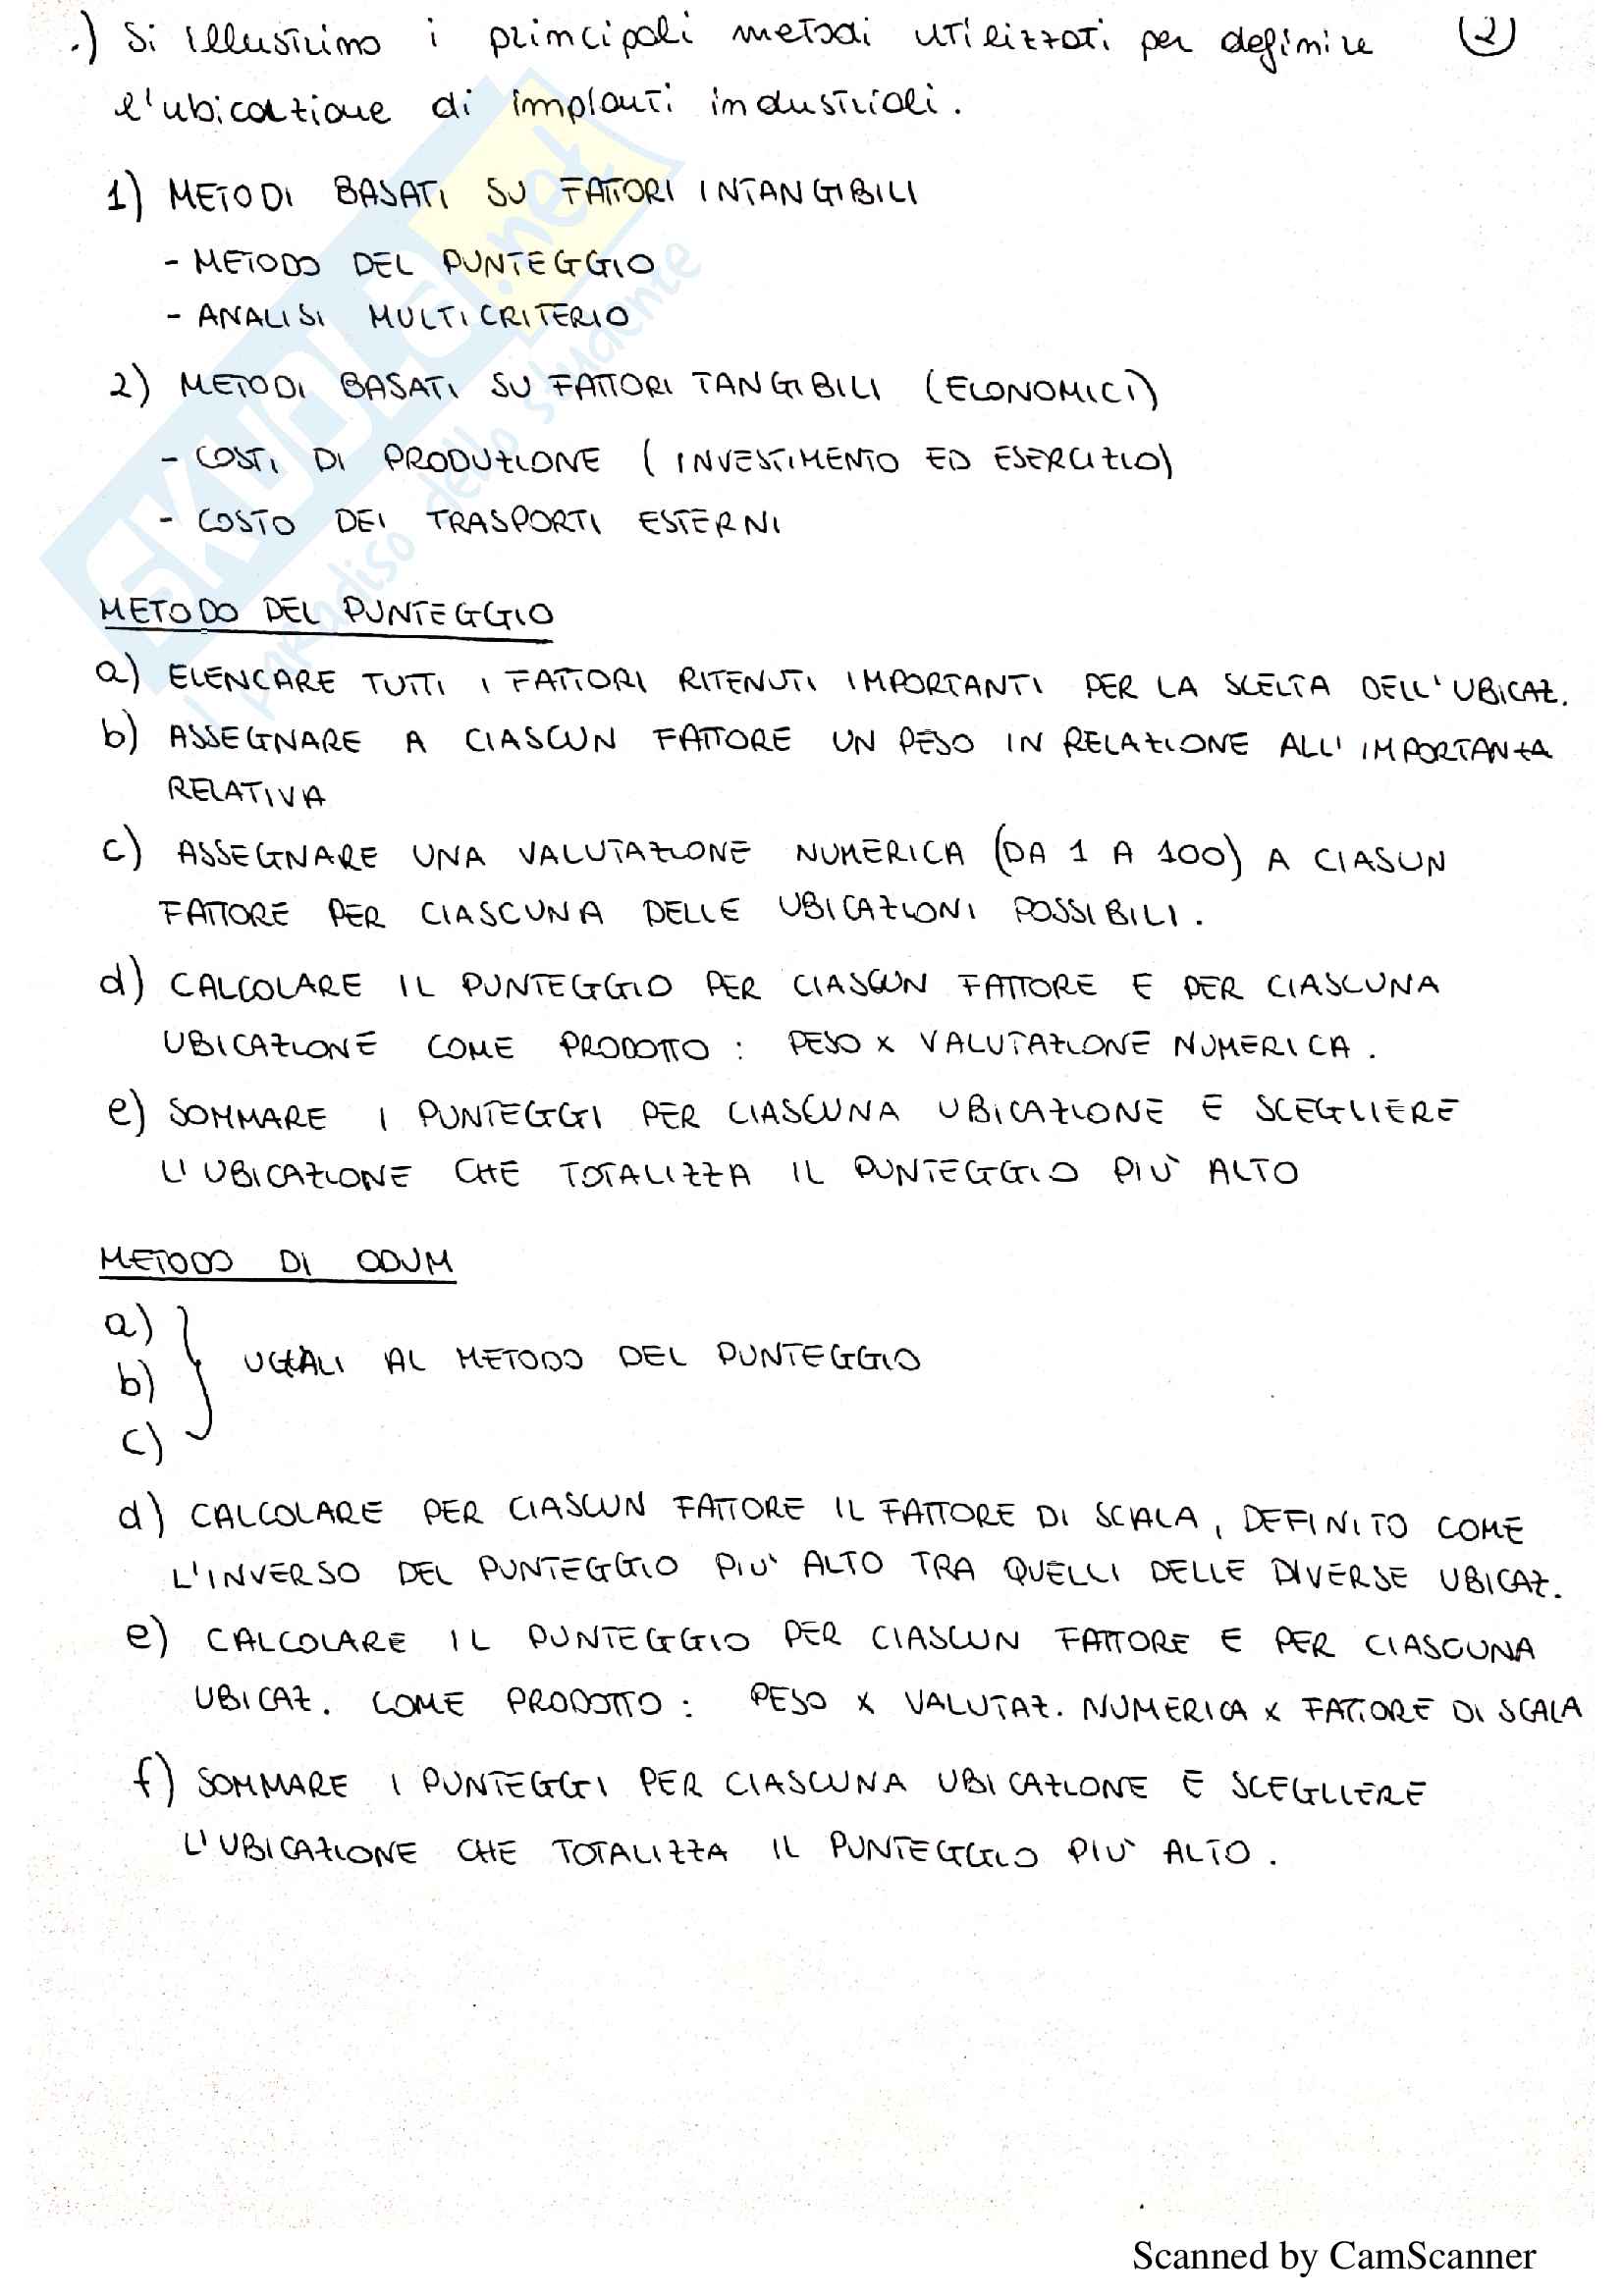 .) Si illustrino i principali metodi utilizzati per definire (2)
l'ubicazione di impianti industriali.
1) METODI BASATI SU FATTORI INTANGIBILI
- METODO DEL PUNTEGGIO
- ANALISI MULTICRITERIO
2) METODI BASATI SU FATTORI TANGIBILI (ECONOMICI)
- COSTI DI PRODUZIONE (INVESTIMENTO ED ESERCIZIO)
- COSTO DEI TRASPORTI ESTERNI
METODO DEL PUNTEGGIO
a) ELENCARE TUTTI I FATTORI RITENUTI IMPORTANTI PER LA SCELTA DELL'UBICAZ.
b) ASSEGNARE A CIASCUN FATTORE UN PESO IN RELAZIONE ALL'IMPORTANZA
RELATIVA
c) ASSEGNARE UNA VALUTAZIONE NUMERICA (DA 1 A 100) A CIASUN
FATTORE PER CIASCUNA DELLE UBICAZIONI POSSIBILI.
d) CALCOLARE IL PUNTEGGIO PER CIASCUN FATTORE E PER CIASCUNA
UBICAZIONE COME PRODOTTO : PESO x VALUTAZIONE NUMERICA.
e) SOMMARE I PUNTEGGI PER CIASCUNA UBICAZIONE E SCEGLIERE
L'UBICAZIONE CHE TOTALIZZA IL PUNTEGGIO PIÙ ALTO
METODO DI ODUM
a)
b) UGUALI AL METODO DEL PUNTEGGIO
c)
d) CALCOLARE PER CIASCUN FATTORE IL FATTORE DI SCALA, DEFINITO COME
L'INVERSO DEL PUNTEGGIO PIU' ALTO TRA QUELLI DELLE DIVERSE UBICAZ.
e) CALCOLARE IL PUNTEGGIO PER CIASCUN FATTORE E PER CIASCUNA
UBICAZ. COME PRODOTTO : PESO x VALUTAZ. NUMERICA x FATTORE DI SCALA
f) SOMMARE I PUNTEGGI PER CIASCUNA UBICAZIONE E SCEGLIERE
L'UBICAZIONE CHE TOTALIZZA IL PUNTEGGIO PIU' ALTO.
SKUOLA.net
il paradiso dello studente
Scanned by CamScanner